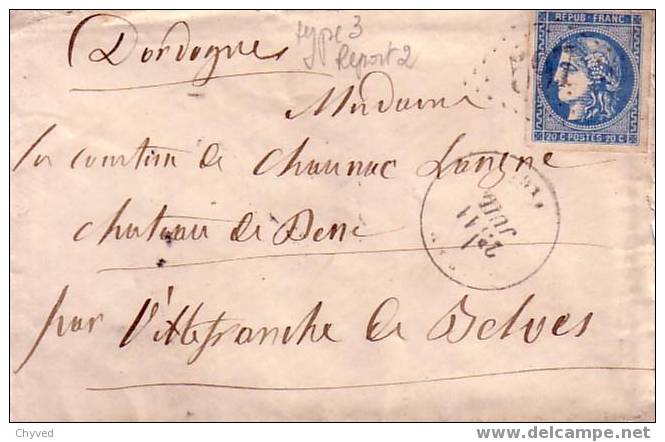 Dordogne
type 3
Report 2
REPUB · FRANC
20 C POSTES 20 C
Madame
la comtesse de Chaunac Lanzac
chateau de
2e
11
JUIL
par Villefranche de Belves
Chyved
delcampe.net